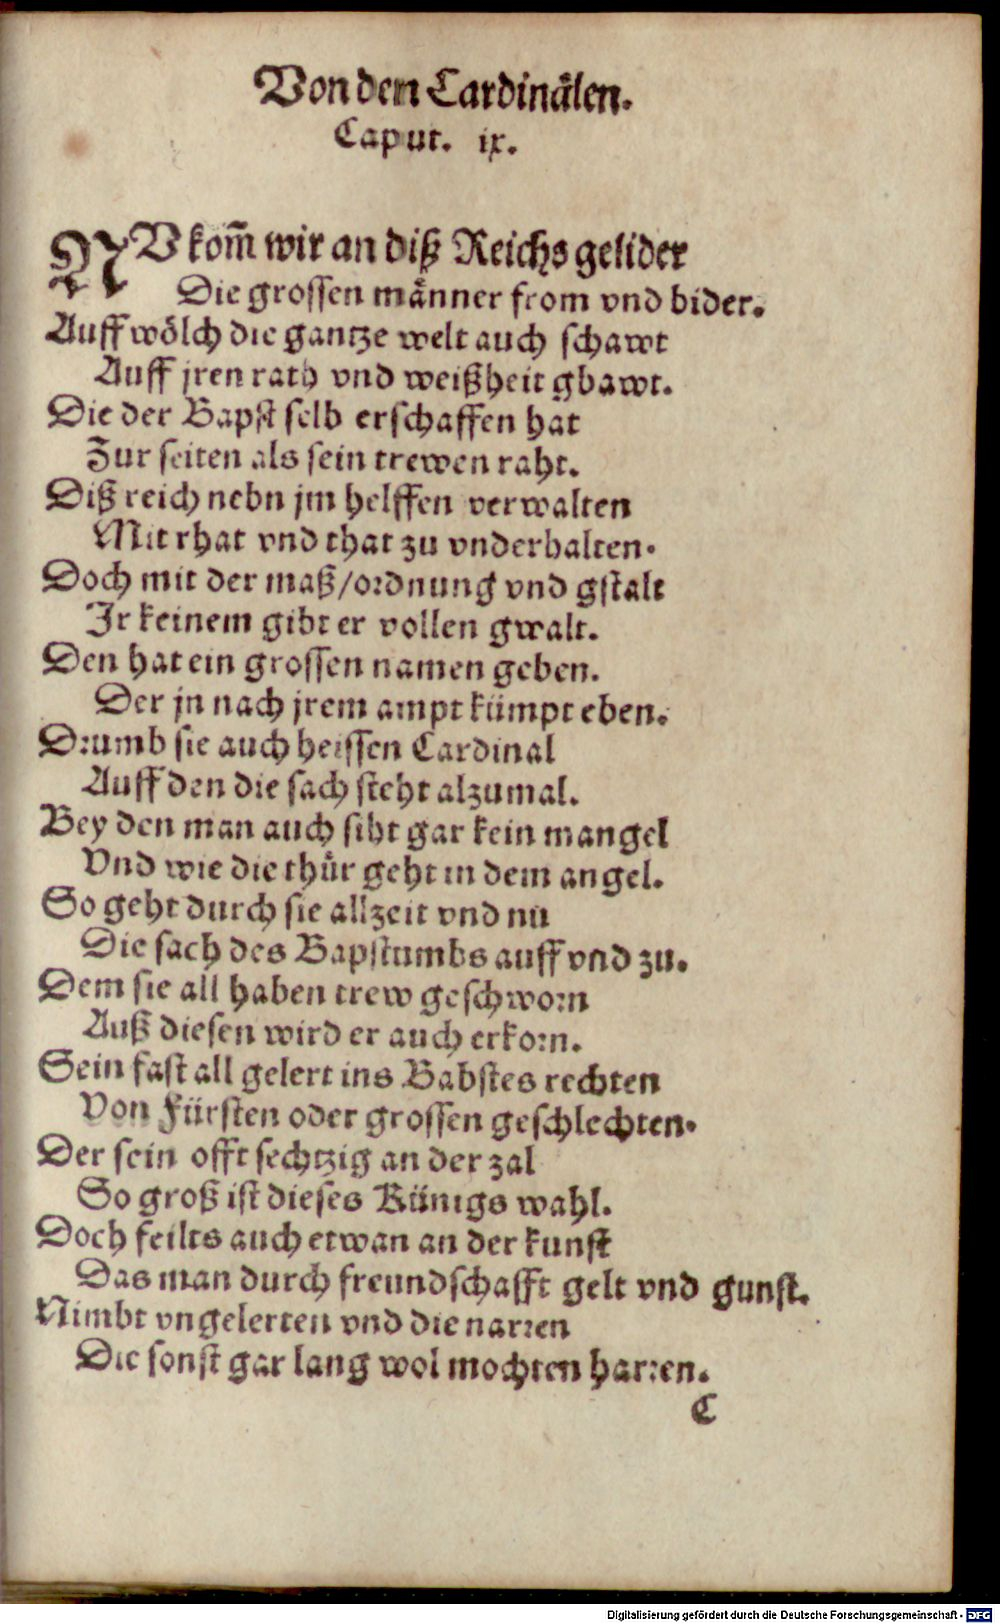 Von den Cardinälen.
Caput. ix.
NV kom̃ wir an diß Reichs gelider
Die grossen männer from vnd bider.
Auff wölch die gantze welt auch schawt
Auff jren rath vnd weißheit gbawt.
Die der Bapst selb erschaffen hat
Zur seiten als sein trewen raht.
Diß reich nebn jm helffen verwalten
Mit rhat vnd that zu vnderhalten.
Doch mit der maß/ordnung vnd gstalt
Jr keinem gibt er vollen gwalt.
Den hat ein grossen namen geben.
Der jn nach jrem ampt kümpt eben.
Drumb sie auch heissen Cardinal
Auff den die sach steht alzumal.
Bey den man auch siht gar kein mangel
Vnd wie die thür geht in dem angel.
So geht durch sie allzeit vnd nu
Die sach des Bapstumbs auff vnd zu.
Dem sie all haben trew geschworn
Auß diesen wird er auch erkorn.
Sein fast all gelert ins Babstes rechten
Von Fürsten oder grossen geschlechten.
Der sein offt sechtzig an der zal
So groß ist dieses Künigs wahl.
Doch feilts auch etwan an der kunst
Das man durch freundschafft gelt vnd gunst.
Nimbt vngelerten vnd die narren
Die sonst gar lang wol mochten harren.
C
Digitalisierung gefördert durch die Deutsche Forschungsgemeinschaft - DFG